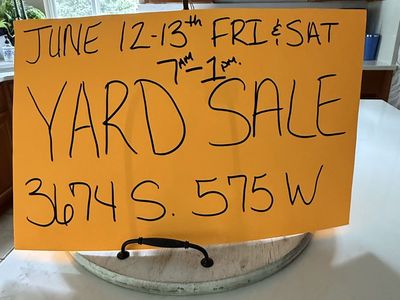 JUNE 12-13th FRI & SAT
7AM-1PM.
YARD SALE
3674 S. 575 W